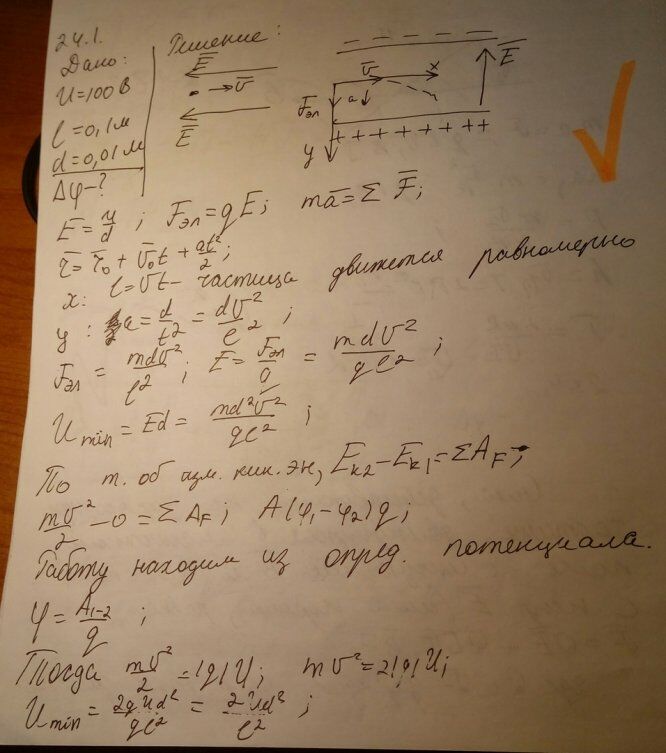 24.1.
Дано:
U=100 В
l=0,1 м
d=0,01 м
Δφ-?
Решение:
E
v
E
− − − − − − −
v
x
E
Fэл
a
y
+ + + + + + + + +
E = u/d ; Fэл = qE; ma = ΣF;
r = r₀ + v₀t + at²/2;
x: l=vt - частица движется равномерно
y: a = d/t² = dv²/l² ;
Fэл = mdv²/l² ; E = Fэл/q = mdv²/ql² ;
Umin = Ed = md²v²/ql² ;
По т. об изм. кин. эн, Eк2 − Eк1 = ΣAF;
mv²/2 − 0 = ΣAF; A(φ₁−φ₂)q;
Работу находим из опред. потенциала.
φ = A₁₋₂/q ;
Тогда mv²/2 = |q|U; mv² = 2|q|U;
Umin = 2qUd²/ql² = 2Ud²/l² ;